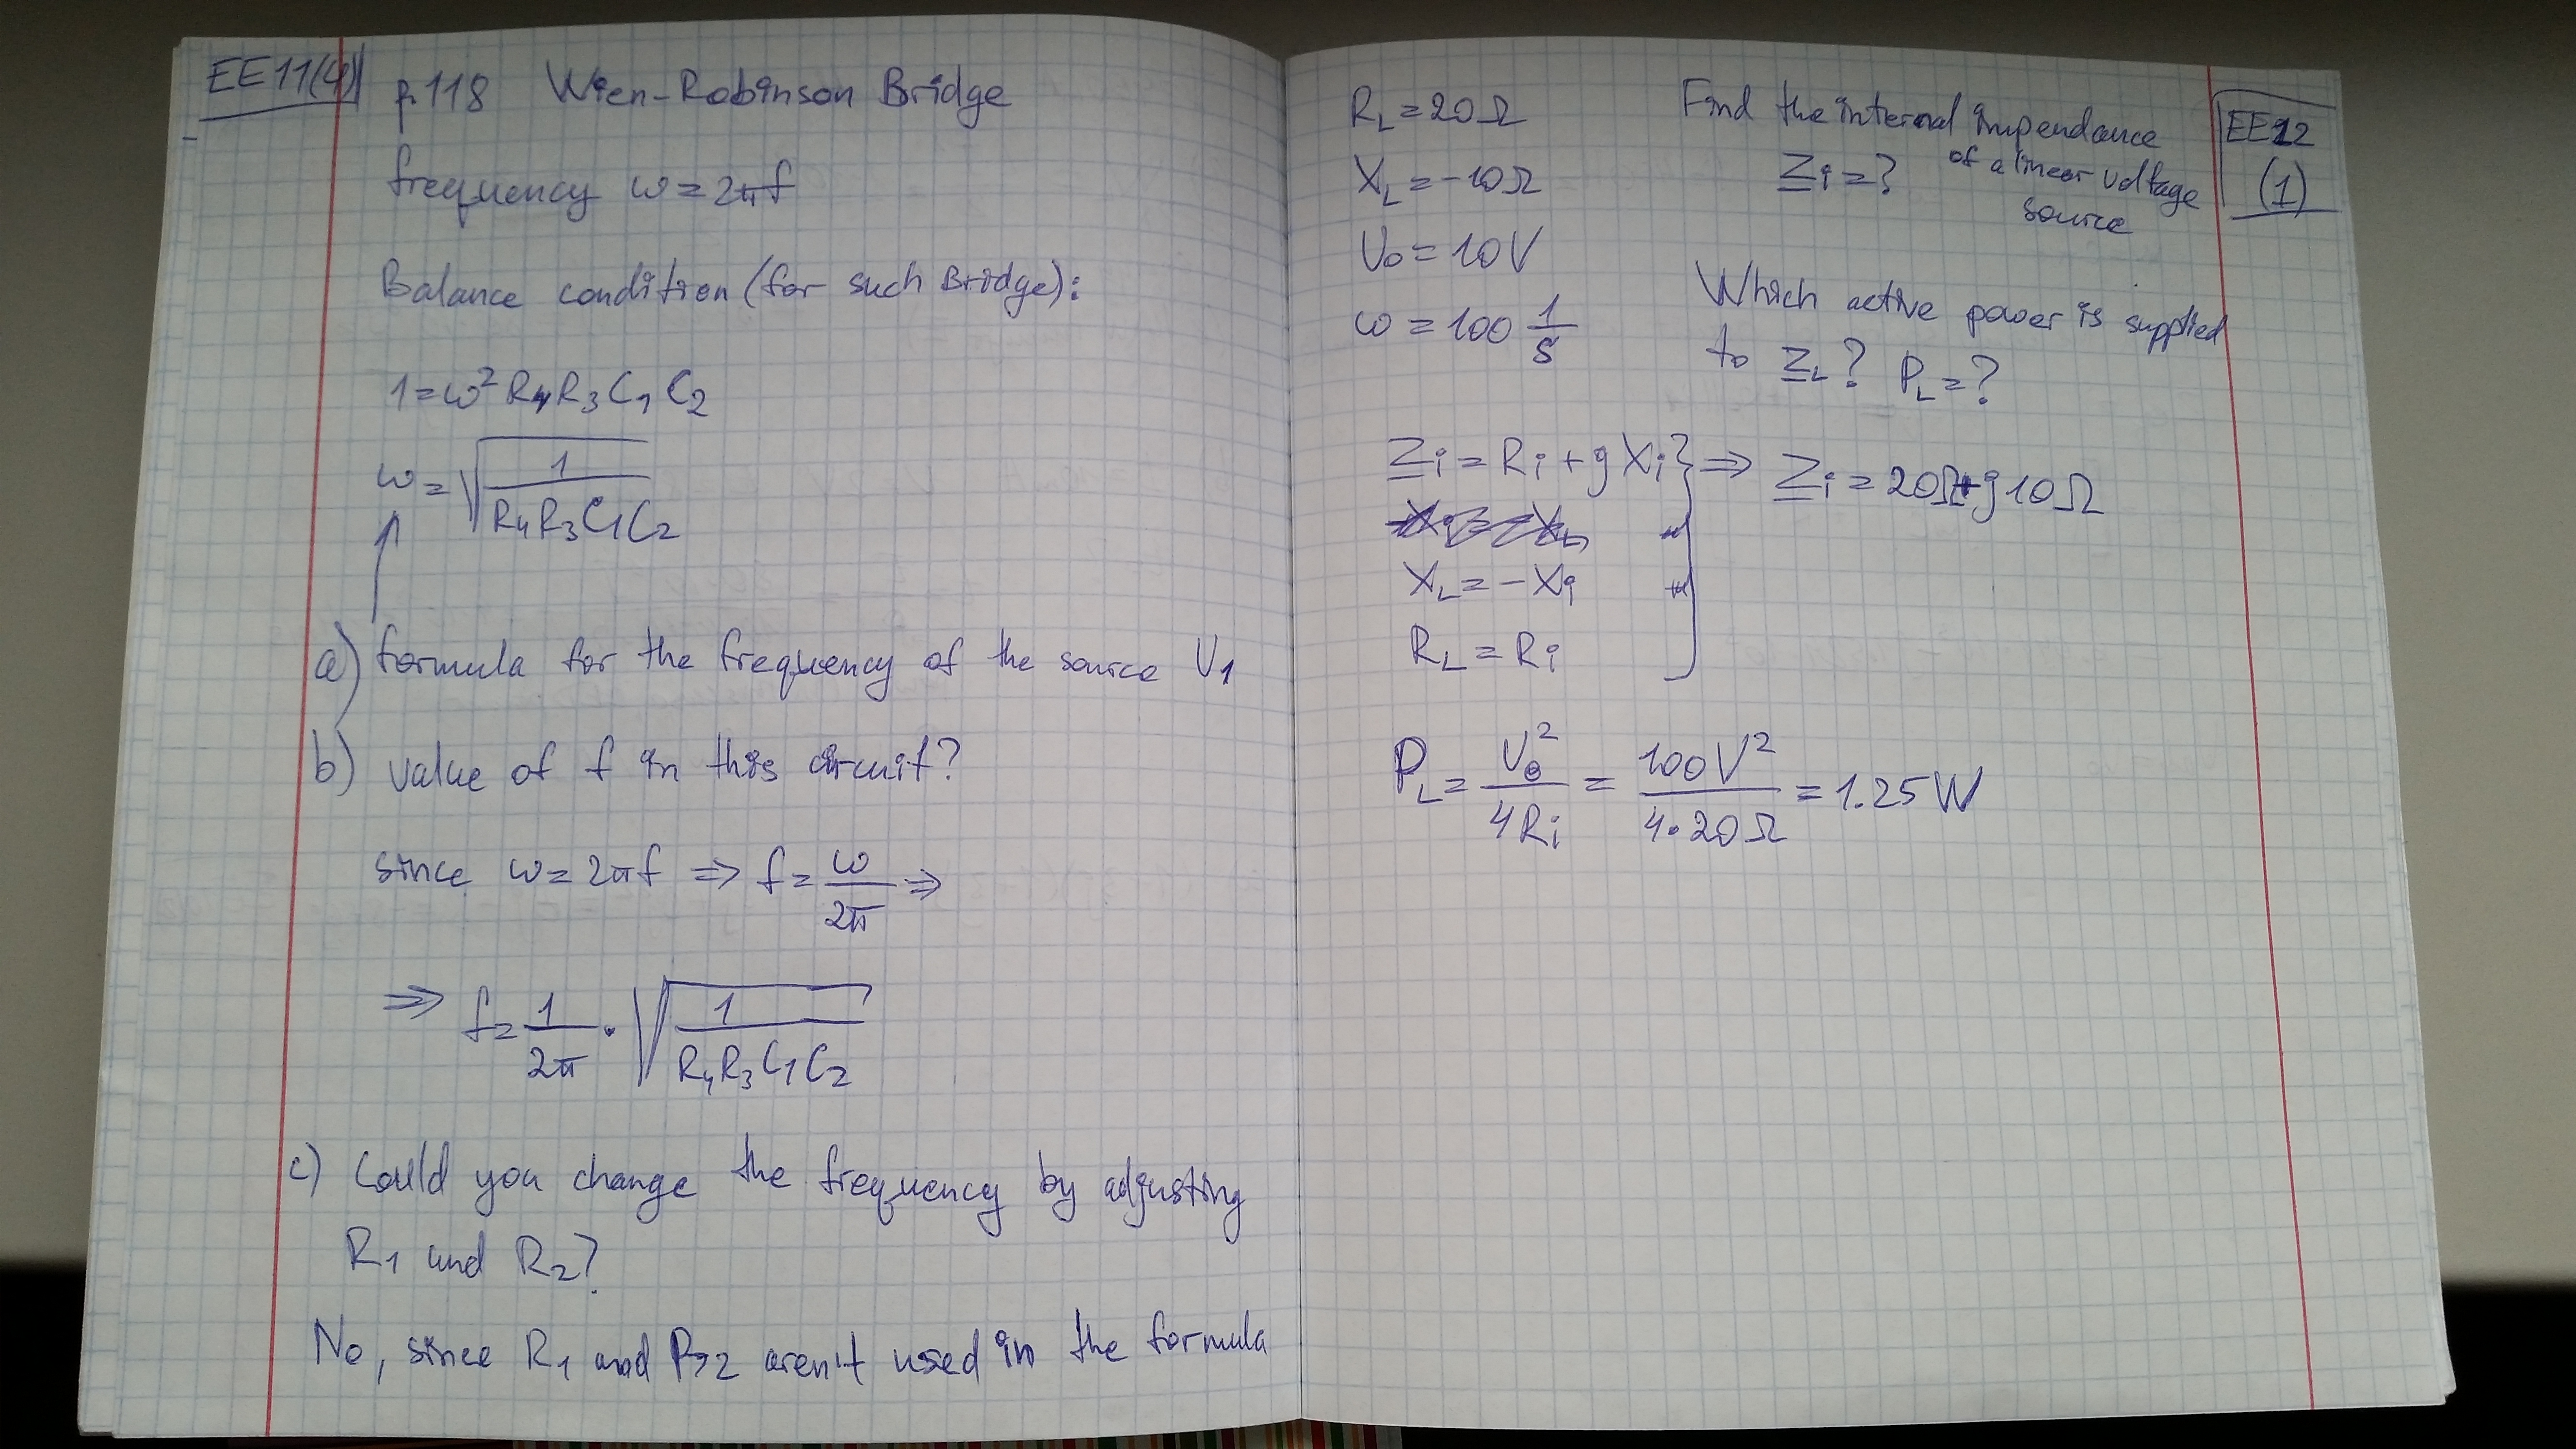 EE11(4)
p.118 Wien-Robinson Bridge
frequency ω = 2πf
Balance condition (for such Bridge):
1 = ω² R₄R₃C₁C₂
ω = √(1 / R₄R₃C₁C₂)
a) formula for the frequency of the source U₁
b) value of f in this circuit?
since ω = 2πf ⇒ f = ω / 2π ⇒
⇒ f = 1 / 2π · √(1 / R₄R₃C₁C₂)
c) Could you change the frequency by adjusting
R₁ and R₂?
No, since R₁ and R₂ aren't used in the formula
EE12
(1)
R_L = 20Ω
X_L = -10Ω
U₀ = 10V
ω = 100 1/s
Find the internal impendance
of a linear voltage
source
Z_i = ?
Which active power is supplied
to Z_L? P_L = ?
Z_i = R_i + jX_i } ⇒ Z_i = 20Ω + j10Ω
X_L = -X_i
R_L = R_i
P_L = U₀² / 4R_i = 100V² / 4·20Ω = 1.25W